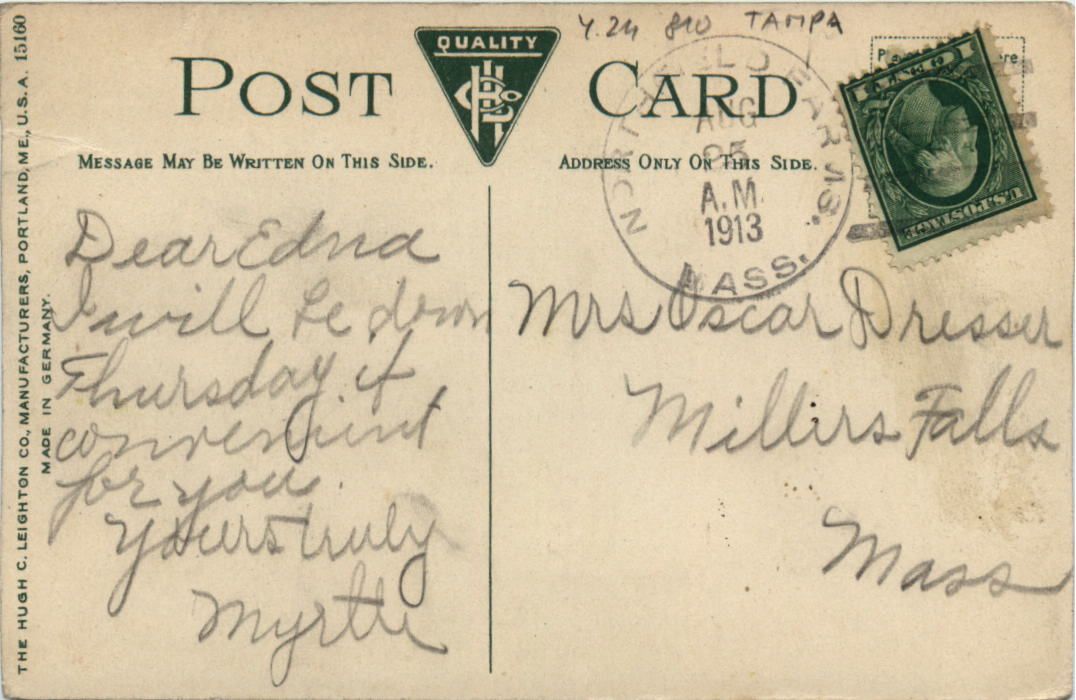 Y.24 810 TAMPA
POST CARD
QUALITY
MESSAGE MAY BE WRITTEN ON THIS SIDE.
ADDRESS ONLY ON THIS SIDE.
NORTHFIELD FARMS.
AUG
25
A.M.
1913
MASS.
U.S. POSTAGE
Dear Edna
I will be down
Thursday if
convenient
for you.
Yours truly
Myrtle
Mrs Oscar Dresser
Millers Falls
Mass
THE HUGH C. LEIGHTON CO., MANUFACTURERS, PORTLAND, ME., U.S.A. 15160
MADE IN GERMANY.